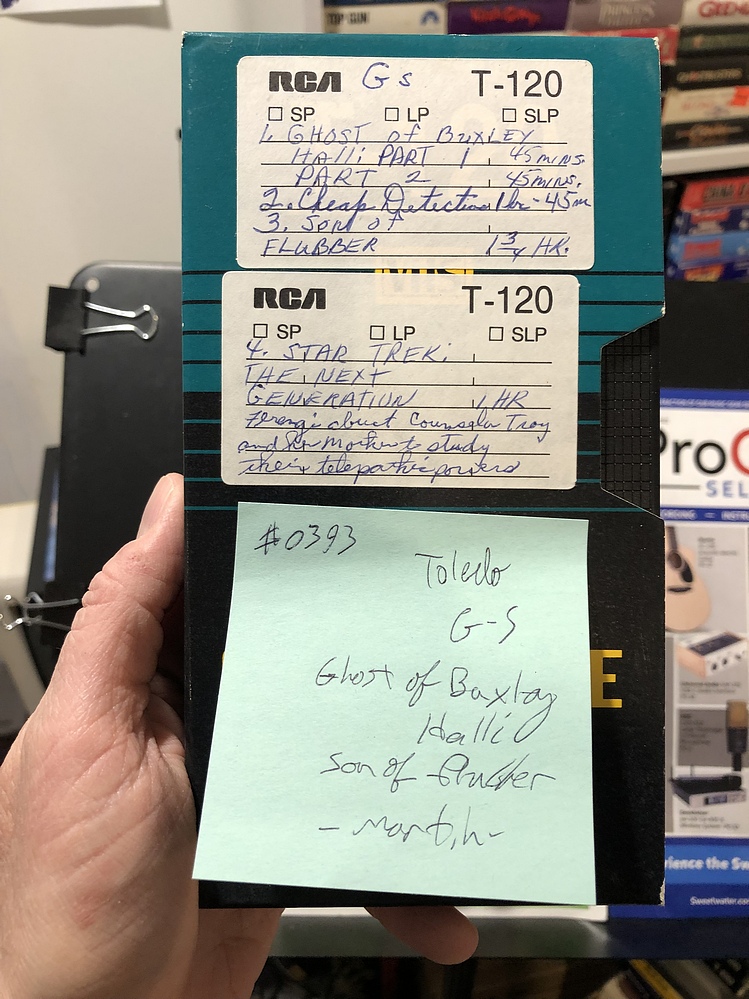 TOP GUN
RCA Gs T-120
SP LP SLP
1. GHOST of BUXLEY
Halli PART 1 45 MINS.
PART 2 45 MINS.
2. Cheap Detection 1 hr - 45 m
3. Son of
FLUBBER 1 3/4 HR.
RCA T-120
SP LP SLP
4. STAR TREK:
THE NEXT
GENERATION 1 HR
Ferengi abuct Counsela Troy
and her Mother to study
their telepathic powers
#0393
Toledo
G-S
Ghost of Buxley
Halli
Son of Flubber
E
Pro
SEL
rience the Sw
Sweetwater.co